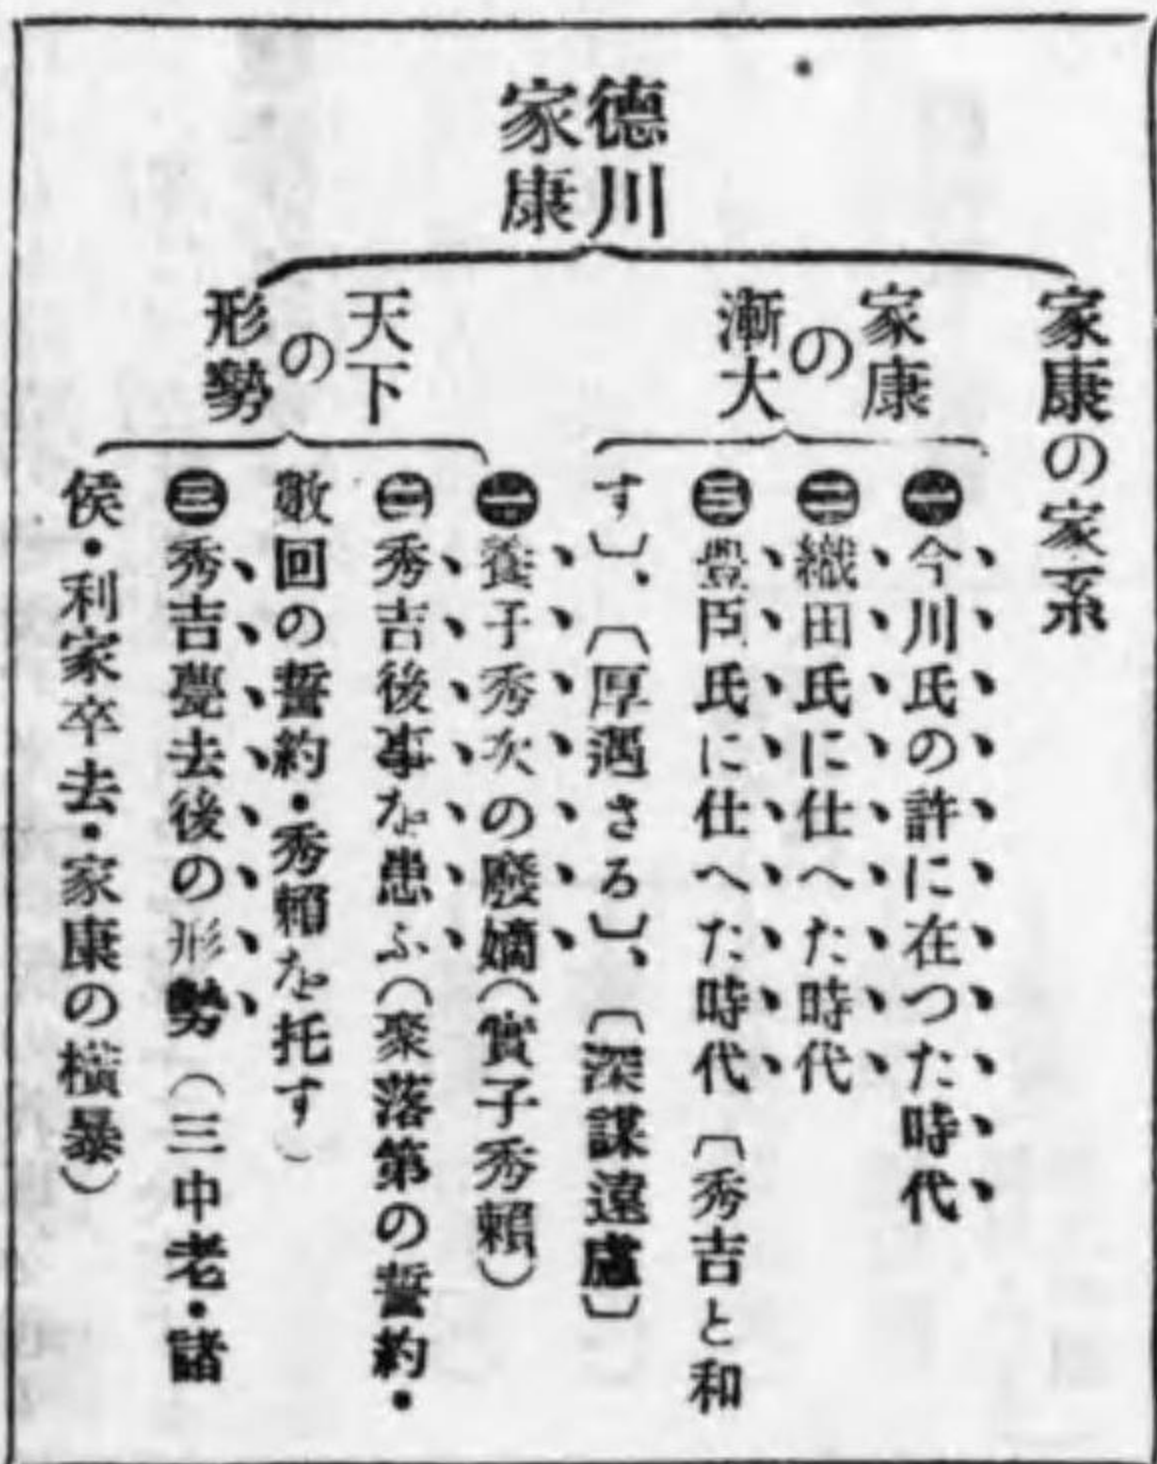 德川
家康
家康の家系
家康
の
漸大
㊀今川氏の許に在つた時代
㊁織田氏に仕へた時代
㊂豊臣氏に仕へた時代〔秀吉と和
す〕、〔厚遇さる〕、〔深謀遠慮〕
天下
の
形勢
㊀養子秀次の廢嫡(實子秀賴)
㊁秀吉後事を患ふ(聚落第の誓約・
數回の誓約・秀賴を托す)
㊂秀吉薨去後の形勢(三中老・諸
侯・利家卒去・家康の橫暴)